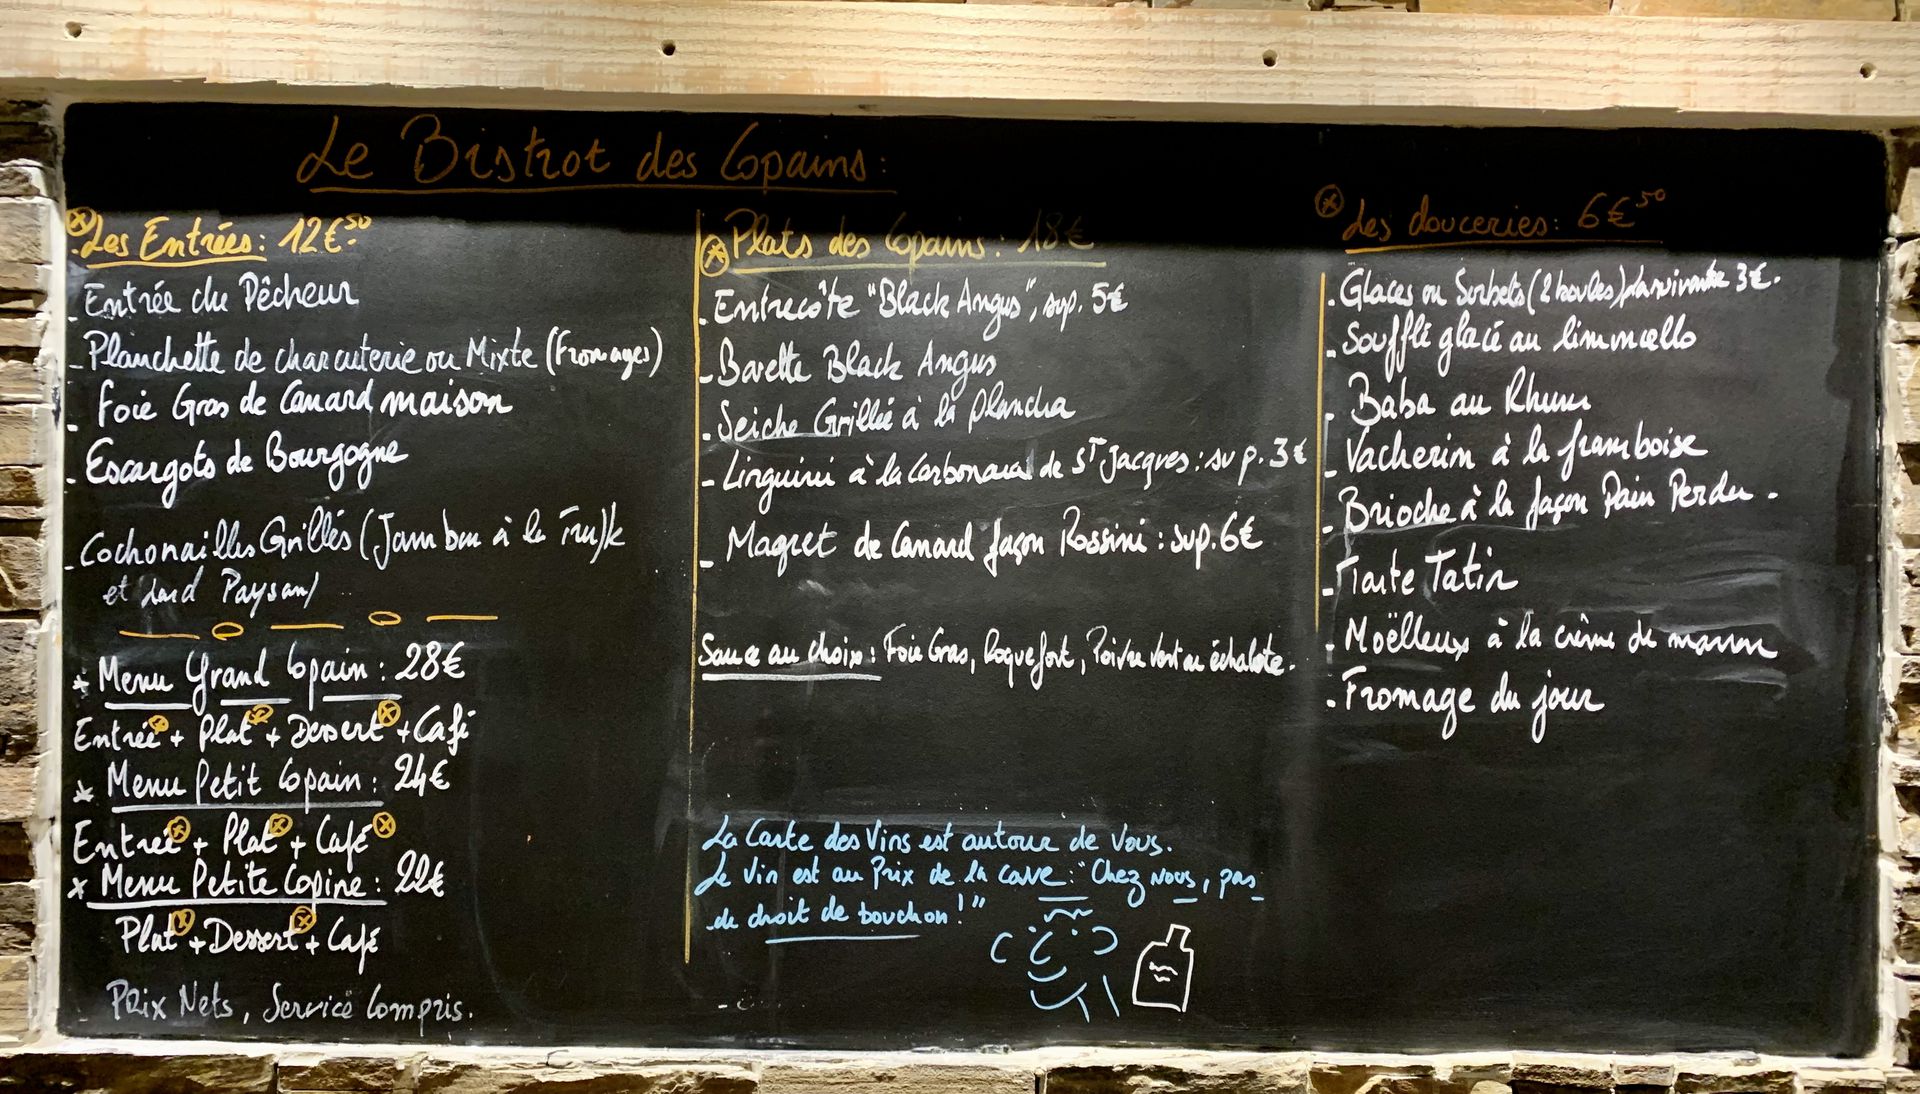 Le Bistrot des Copains:
Les Entrées: 12€50
- Entrée du Pêcheur
- Planchette de charcuterie ou Mixte (Fromages)
- Foie Gras de Canard maison
- Escargots de Bourgogne
- Cochonailles Grillés (Jambon à la
et Lard Paysan)
* Menu Grand Copain: 28€
Entrée + Plat + Dessert + Café
* Menu Petit Copain: 24€
Entrée + Plat + Café
* Menu Petite Copine: 22€
Plat + Dessert + Café
Prix Nets, Service Compris.
Plats des Copains: 18€
- Entrecôte "Black Angus", sup. 5€
- Bavette Black Angus
- Seiche Grillée à la plancha
- Linguini à la Carbonara de ST Jacques: sup. 3€
- Magret de Canard façon Rossini: sup. 6€
Sauce au choix: Foie Gras, Roquefort, Poivre Vert ou échalote.
La Carte des Vins est autour de Vous.
Le Vin est au Prix de la cave: "Chez nous, pas
de droit de bouchon!"
Les douceries: 6€50
- Glaces ou Sorbets (2 boules) la suivante 3€.
- Soufflé glacé au limoncello
- Baba au Rhum
- Vacherin à la framboise
- Brioche à la façon Pain Perdu.
- Tarte Tatin
- Moëlleux à la crème de marron
- Fromage du jour